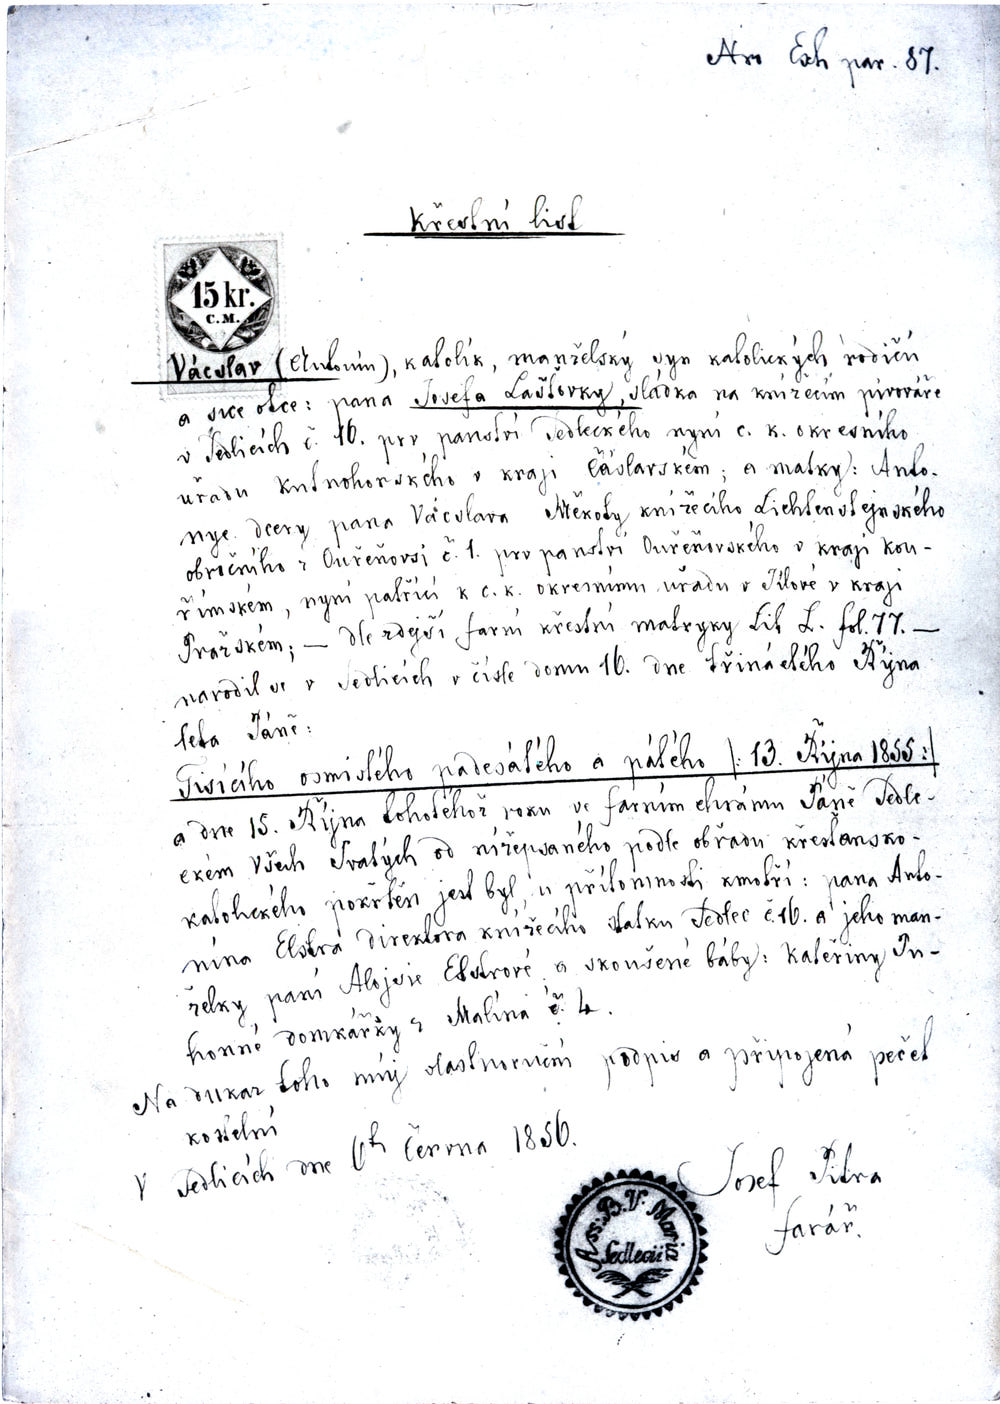 Nro Exh par. 87.
Křestní list
15 kr.
C.M.
Václav (Antonín), katolík, manželský syn katolických rodičů
a sice otce: pana Josefa Laštovky, sládka na knížecím pivováře
v Sedlicích č. 16. prv panství Sedleckého nyní c. k. okresního
úřadu Kutnohorského v kraji Čáslavském; a matky: Anto-
nye dcery pana Václava Měkoty knížecího Lichtenštejnského
obročního z Ouřeňovsi č. 1. prv panství Ouřeňovského v kraji Kou-
římském, nyní patřící k c. k. okresnímu úřadu v Jílové v kraji
Pražském; — dle zdejší farní křestní matryky Lit L. fol. 77. —
narodil se v Sedlicích v čísle domu 16. dne třináctého Října
leta Páně:
Tisícího osmistého padesátého a pátého /: 13. Října 1855 :/
a dne 15. Října tohotéhož roku ve farním chrámu Páně Sedle-
ckém Všech Svatých od nížepsaného podle obřadu křesťansko-
katolického pokřtěn jest byl, u přítomnosti kmotří: pana Anto-
nína Elstra direktora knížecího statku Sedlec č. 16. a jeho man-
želky paní Alojsie Elstrové a skoušené báby: Kateřiny Pu-
honné domkářky z Malína č. 4.
Na důkaz toho můj vlastnoruční podpis a připojená pečeť
kostelní
V Sedlicích dne 6th Června 1856.
Josef Pitra
farář.
Ass: B. V. Maria
Sedlecii